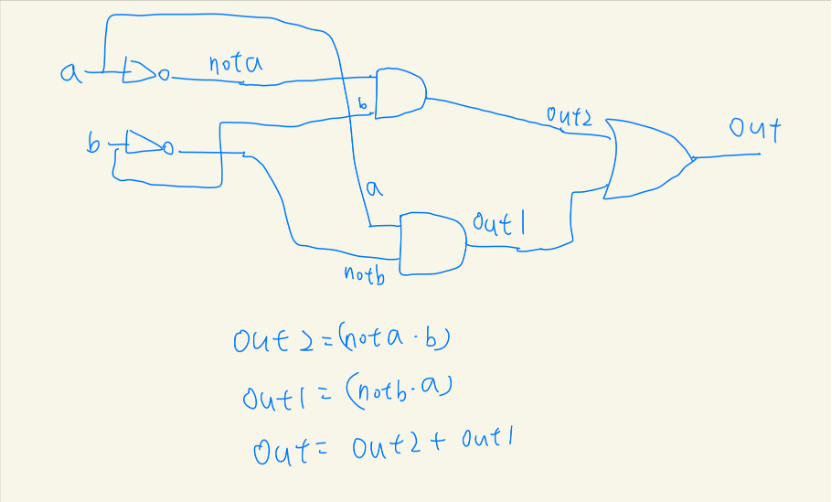 a
nota
b
out2
out
b
a
out1
notb
out2=(nota·b)
out1=(notb·a)
out= out2+out1